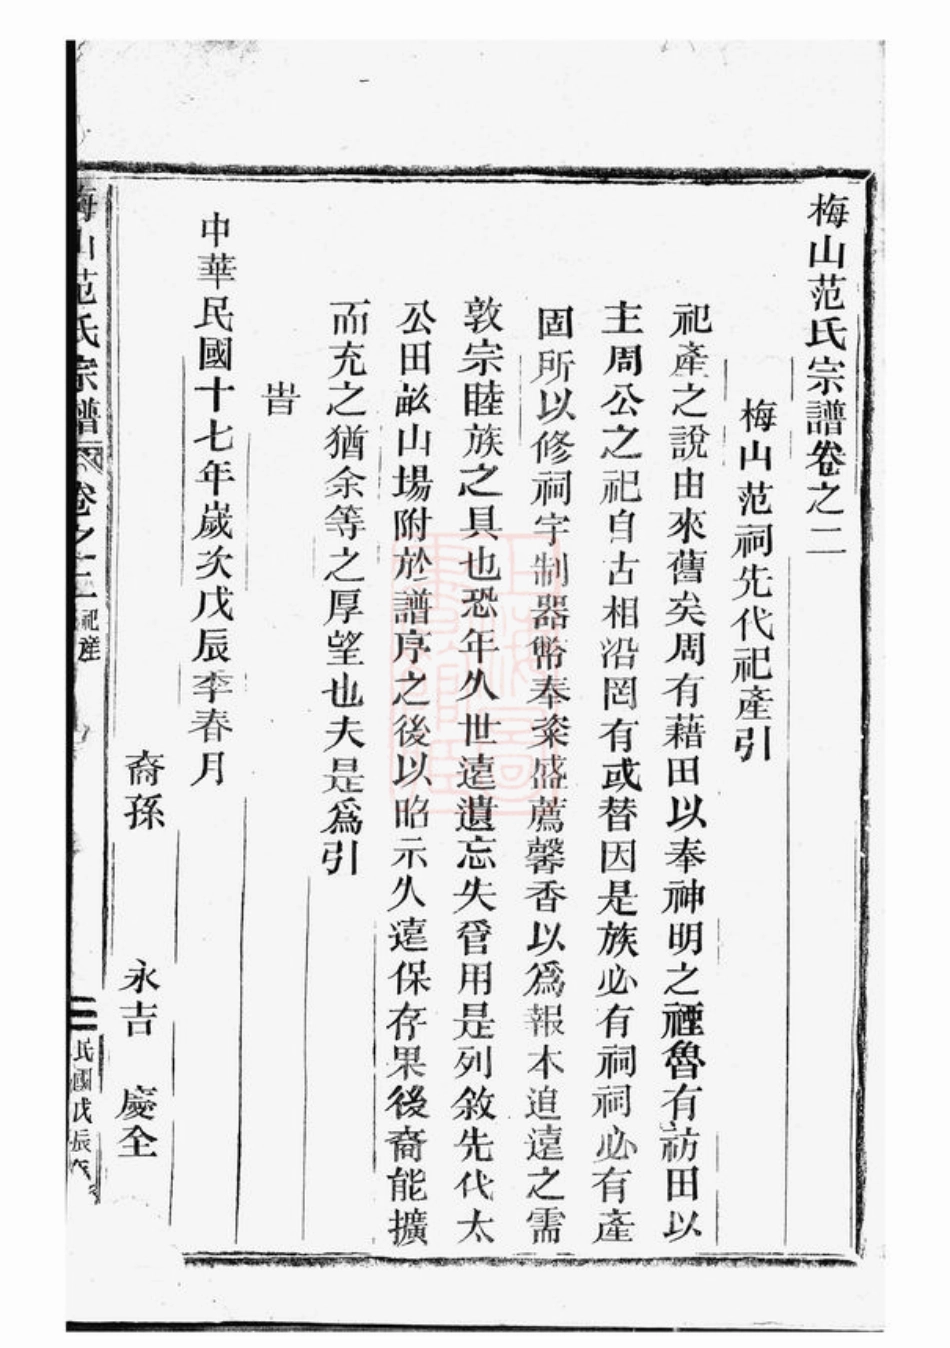 梅山范氏宗譜卷之二
梅山范祠先代祀產引
祀產之說由來舊矣周有藉田以奉神明之禋魯有祊田以
主周公之祀自古相沿罔有或替因是族必有祠祠必有產
固所以修祠宇制器幣奉粢盛薦馨香以爲報本追遠之需
敦宗睦族之具也恐年久世遠遺忘失管用是列敘先代太
公田畝山場附於譜序之後以昭示久遠保存果後裔能擴
而充之猶余等之厚望也夫是爲引
旹
中華民國十七年歲次戊辰季春月
裔孫 永吉 慶全
梅山范氏宗譜 卷之二 祀產 二 民國戊辰